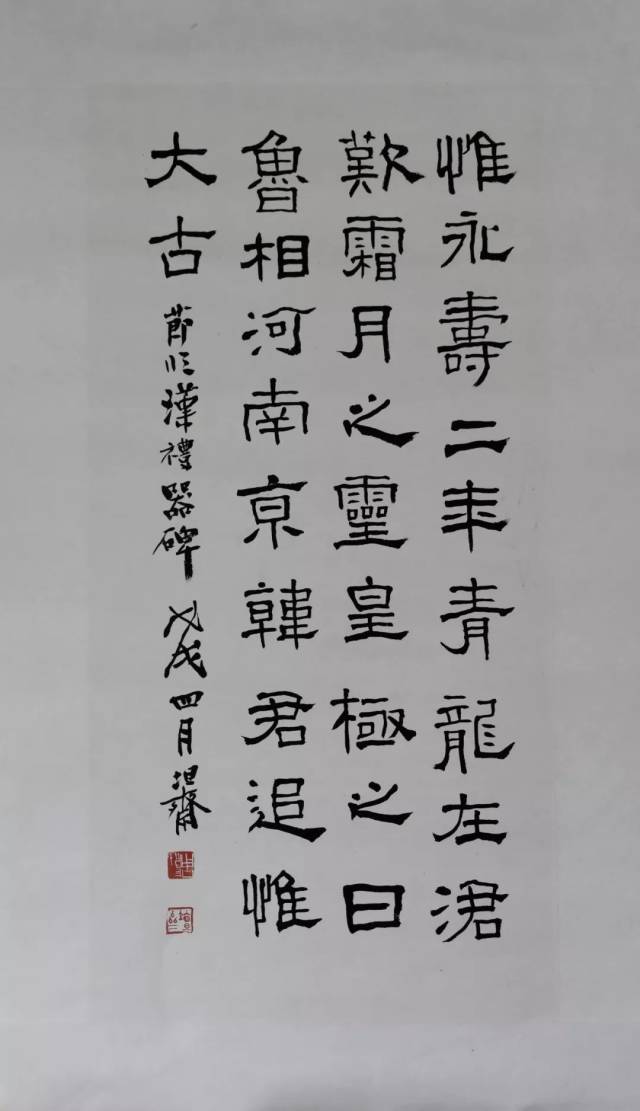 惟永壽二年青龍在涒
歎霜月之靈皇極之日
魯相河南京韓君追惟
大古
節臨漢禮器碑 戊戌四月 坦齋